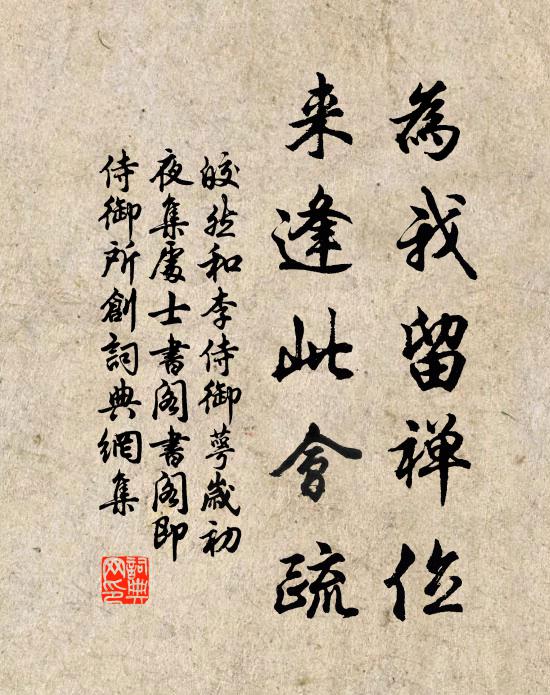 為我留禅位
来逢此會疏
皎然和李侍御萼歲初
夜集處士書阁書阁即
侍御所創詞典網集
詞典
网印